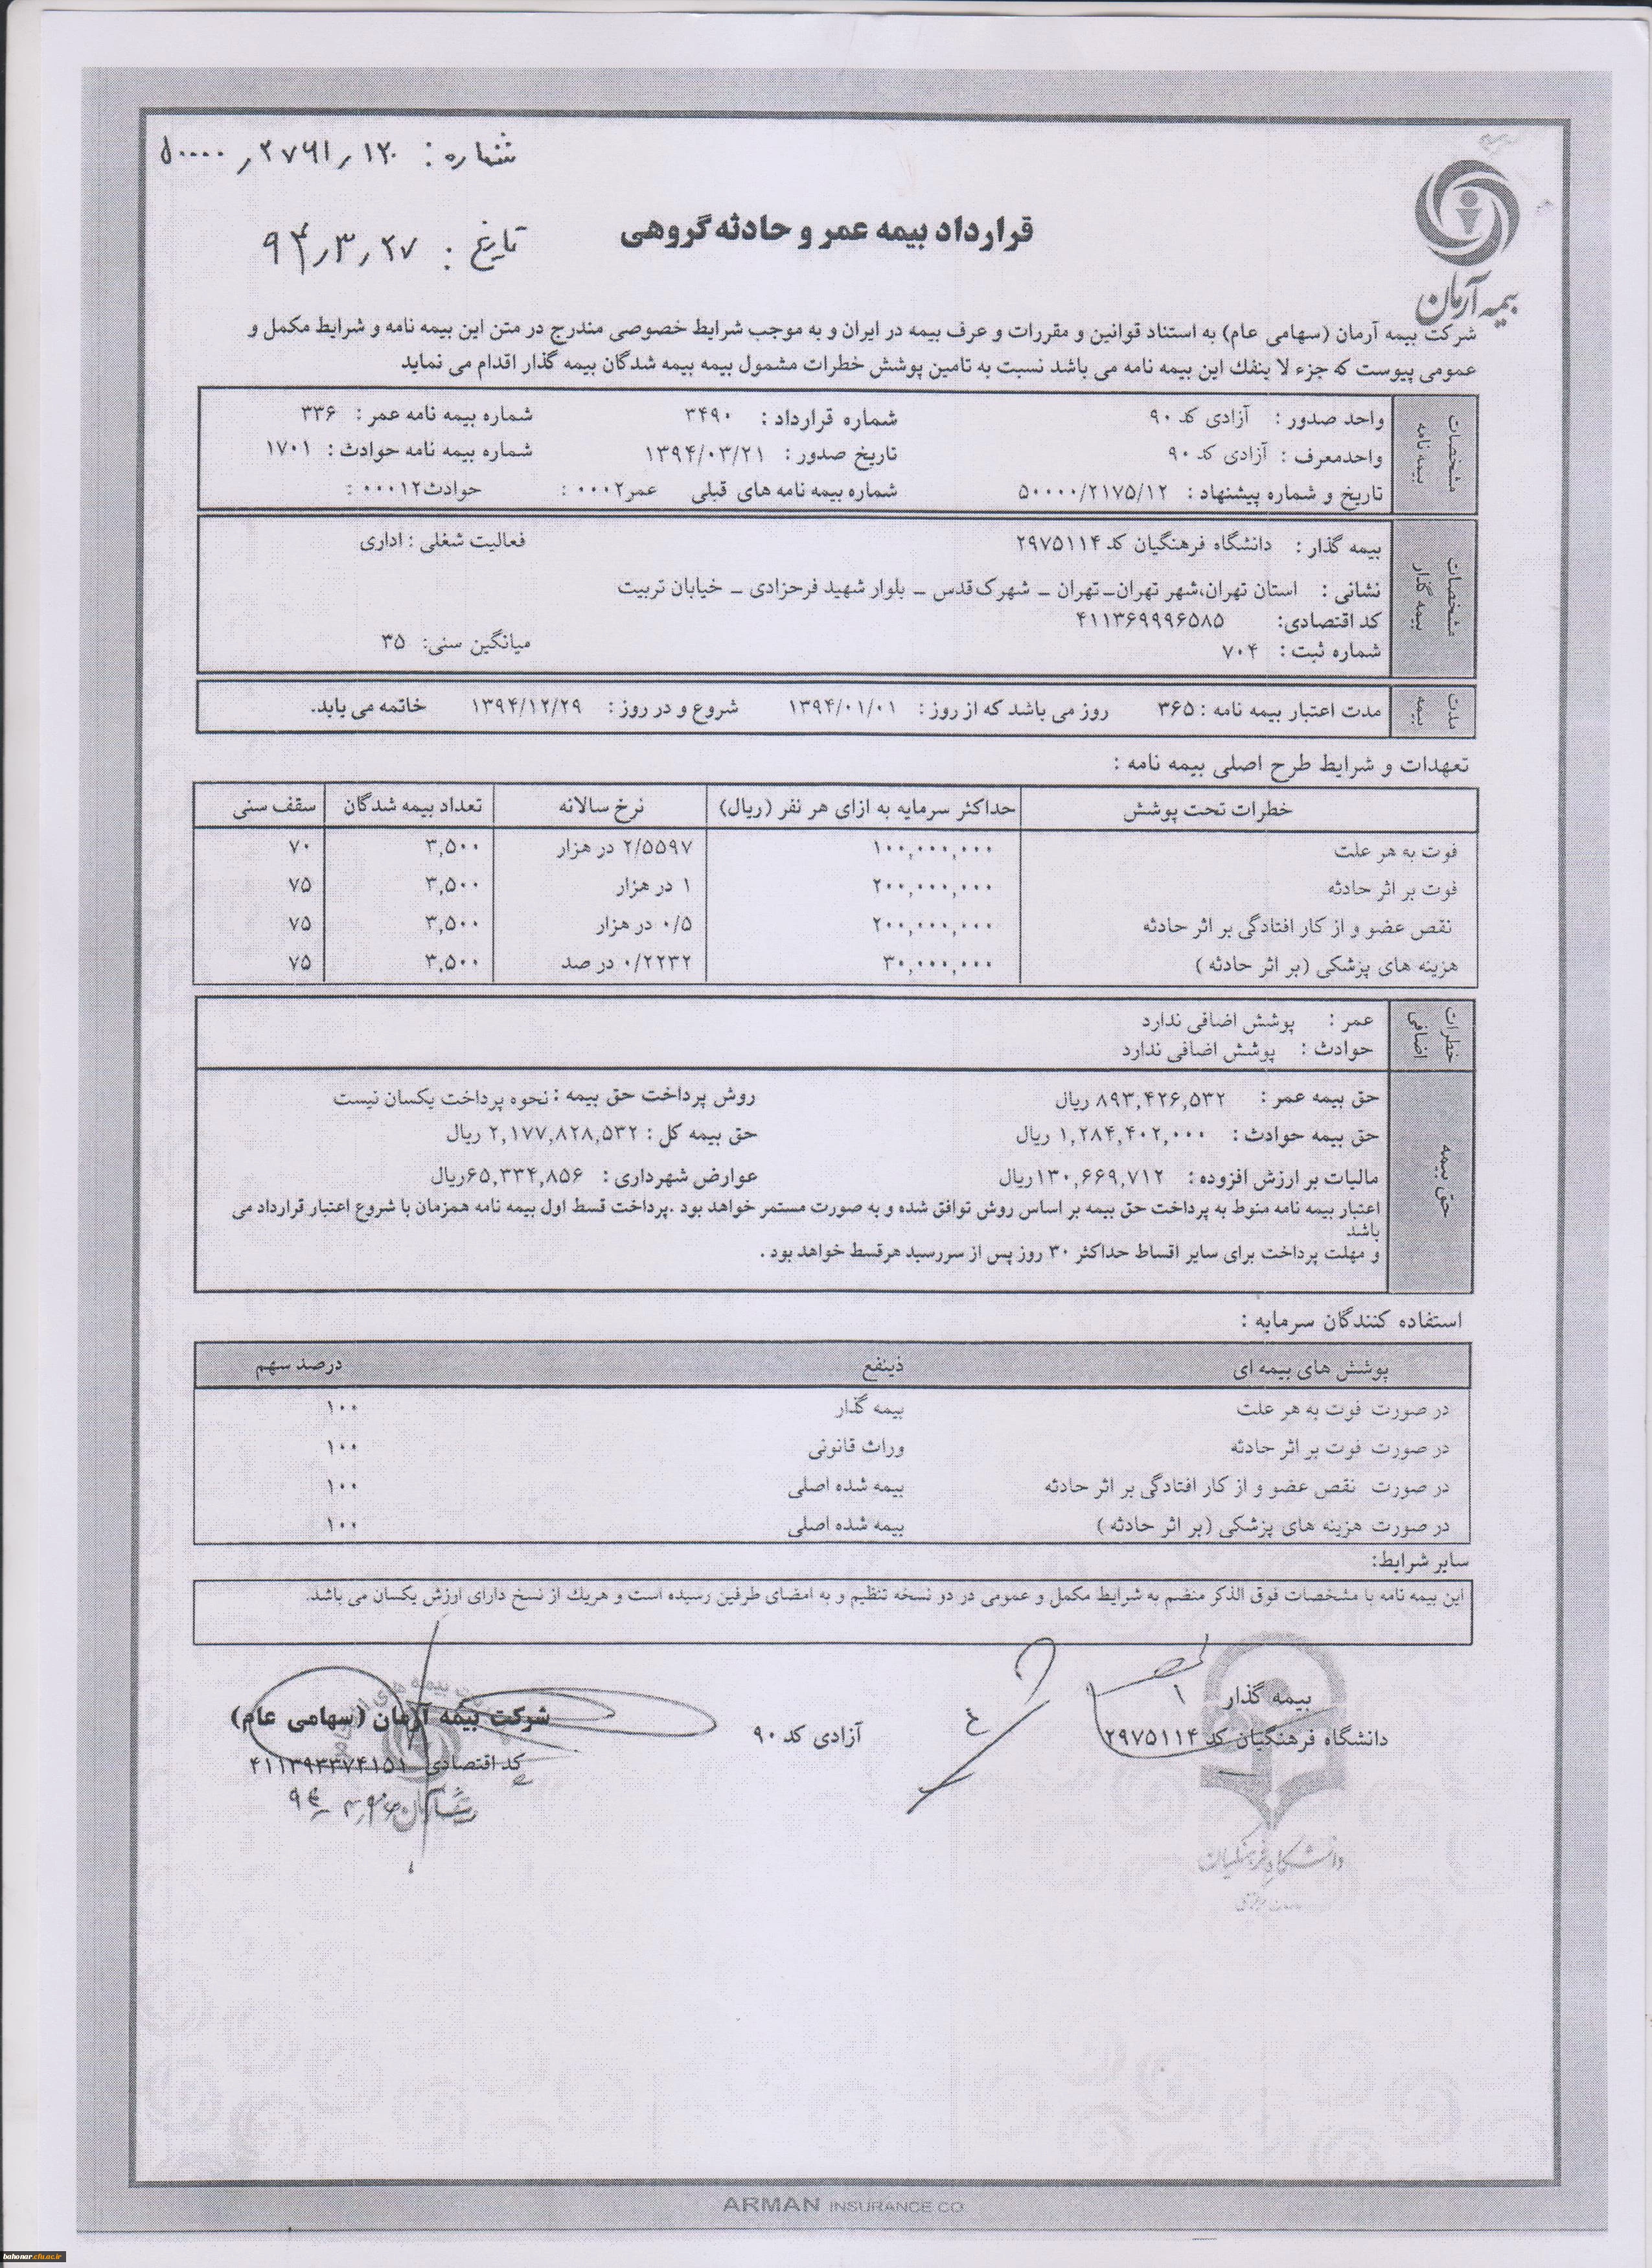 شماره : ۵۰۰۰۰٫۲۷۶۱٫۱۲
تاریخ : ۹۴٫۳٫۲۷
بیمه آرمان
قرارداد بیمه عمر و حادثه گروهی
شرکت بیمه آرمان (سهامی عام) به استناد قوانین و مقررات و عرف بیمه در ایران و به موجب شرایط خصوصی مندرج در متن این بیمه نامه و شرایط مکمل و
عمومی پیوست که جزء لا ینفك این بیمه نامه می باشد نسبت به تامین پوشش خطرات مشمول بیمه بیمه شدگان بیمه گذار اقدام می نماید
مشخصات بیمه نامه
واحد صدور : آزادی کد ۹۰ شماره قرارداد : ۳۴۹۰ شماره بیمه نامه عمر : ۳۳۶
واحدمعرف : آزادی کد ۹۰ تاریخ صدور : ۱۳۹۴/۰۳/۲۱ شماره بیمه نامه حوادث : ۱۷۰۱
تاریخ و شماره پیشنهاد : ۵۰۰۰۰/۲۱۷۵/۱۲ شماره بیمه نامه های قبلی عمر۰۰۰۲ : حوادث۰۰۰۱۲ :
مشخصات بیمه گذار
بیمه گذار : دانشگاه فرهنگیان کد ۲۹۷۵۱۱۴ فعالیت شغلی : اداری
نشانی : استان تهران،شهر تهران-تهران - شهرک قدس - بلوار شهید فرحزادی - خیابان تربیت
کد اقتصادی: ۴۱۱۳۶۹۹۹۶۵۸۵
شماره ثبت : ۷۰۴ میانگین سنی: ۳۵
مدت بیمه
مدت اعتبار بیمه نامه : ۳۶۵ روز می باشد که از روز : ۱۳۹۴/۰۱/۰۱ شروع و در روز : ۱۳۹۴/۱۲/۲۹ خاتمه می یابد.
تعهدات و شرایط طرح اصلی بیمه نامه :
خطرات تحت پوشش حداکثر سرمایه به ازای هر نفر (ریال) نرخ سالانه تعداد بیمه شدگان سقف سنی
فوت به هر علت ۱۰۰,۰۰۰,۰۰۰ ۲/۵۵۹۷ در هزار ۳,۵۰۰ ۷۰
فوت بر اثر حادثه ۲۰۰,۰۰۰,۰۰۰ ۱ در هزار ۳,۵۰۰ ۷۵
نقص عضو و از کار افتادگی بر اثر حادثه ۲۰۰,۰۰۰,۰۰۰ ۰/۵ در هزار ۳,۵۰۰ ۷۵
هزینه های پزشکی (بر اثر حادثه ) ۳۰,۰۰۰,۰۰۰ ۰/۲۲۳۲ در صد ۳,۵۰۰ ۷۵
خطرات اضافی
عمر : پوشش اضافی ندارد
حوادث : پوشش اضافی ندارد
حق بیمه
حق بیمه عمر : ۸۹۳,۴۲۶,۵۳۲ ریال روش پرداخت حق بیمه : نحوه پرداخت یکسان نیست
حق بیمه حوادث : ۱,۲۸۴,۴۰۲,۰۰۰ ریال حق بیمه کل : ۲,۱۷۷,۸۲۸,۵۳۲ ریال
مالیات بر ارزش افزوده : ۱۳۰,۶۶۹,۷۱۲ریال عوارض شهرداری : ۶۵,۳۳۴,۸۵۶ریال
اعتبار بیمه نامه منوط به پرداخت حق بیمه بر اساس روش توافق شده و به صورت مستمر خواهد بود .پرداخت قسط اول بیمه نامه همزمان با شروع اعتبار قرارداد می
باشد
و مهلت پرداخت برای سایر اقساط حداکثر ۳۰ روز پس از سررسید هرقسط خواهد بود .
استفاده کنندگان سرمایه :
پوشش های بیمه ای ذینفع درصد سهم
در صورت فوت به هر علت بیمه گذار ۱۰۰
در صورت فوت بر اثر حادثه وراث قانونی ۱۰۰
در صورت نقص عضو و از کار افتادگی بر اثر حادثه بیمه شده اصلی ۱۰۰
در صورت هزینه های پزشکی (بر اثر حادثه ) بیمه شده اصلی ۱۰۰
سایر شرایط:
این بیمه نامه با مشخصات فوق الذکر منضم به شرایط مکمل و عمومی در دو نسخه تنظیم و به امضای طرفین رسیده است و هریك از نسخ دارای ارزش یکسان می باشد.
بیمه گذار
دانشگاه فرهنگیان کد ۲۹۷۵۱۱۴ آزادی کد ۹۰ شرکت بیمه آرمان (سهامی عام)
کد اقتصادی ۴۱۱۳۹۳۳۷۴۱۵۱
دانشگاه فرهنگیان
ARMAN INSURANCE CO.
bahonar.cfu.ac.ir